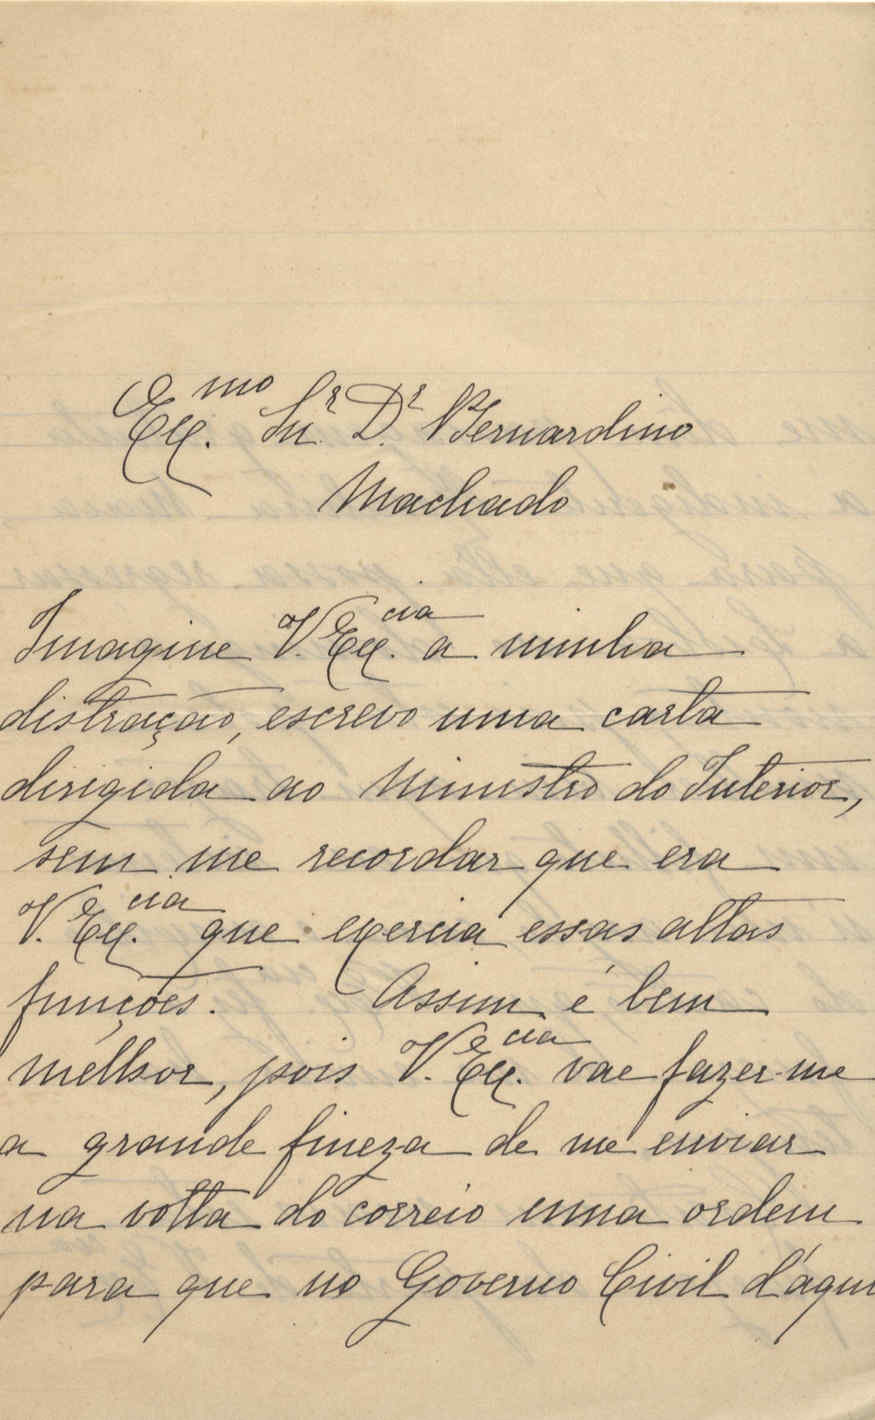 Ex.mo Snr. Dr. Bernardino
Machado
Imagine V. Ex.cia a minha
distração, escrevo uma carta
dirigida ao Ministro do Interior,
sem me recordar que era
V. Ex.cia que exercia essas altas
funções. Assim é bem
melhor, pois V. Ex.cia vae fazer-me
a grande fineza de me enviar
na volta do correio uma ordem
para que no Governo Civil d'aqui